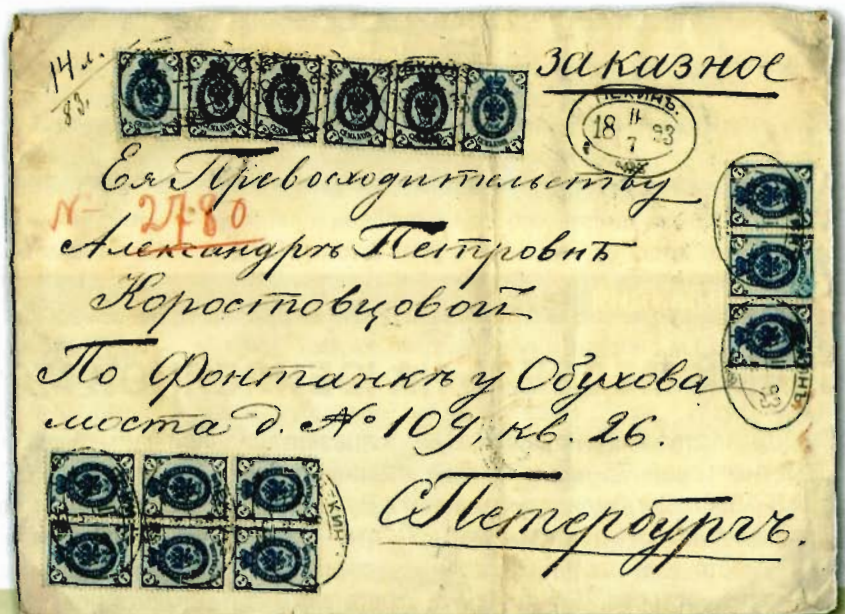 14 л.
83.
заказное
ПЕКИНЪ.
18 II 93
7
Ея Превосходительству
N- 2780
Александрѣ Петровнѣ
Коростовцовой
По Фонтанкѣ у Обухова
моста д. № 109, кв. 26.
С Петербургъ.